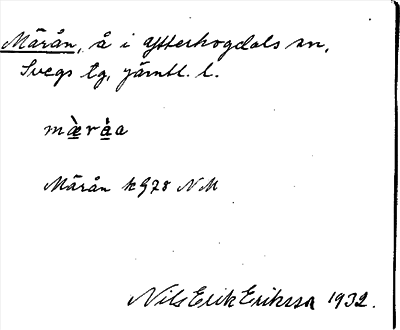 Märån, å i Ytterhogdals sn,
Svegs tg, Jämtl. l.
mæ̀råa
Märån k 978 NM
Nils Erik Eriksson 1932.